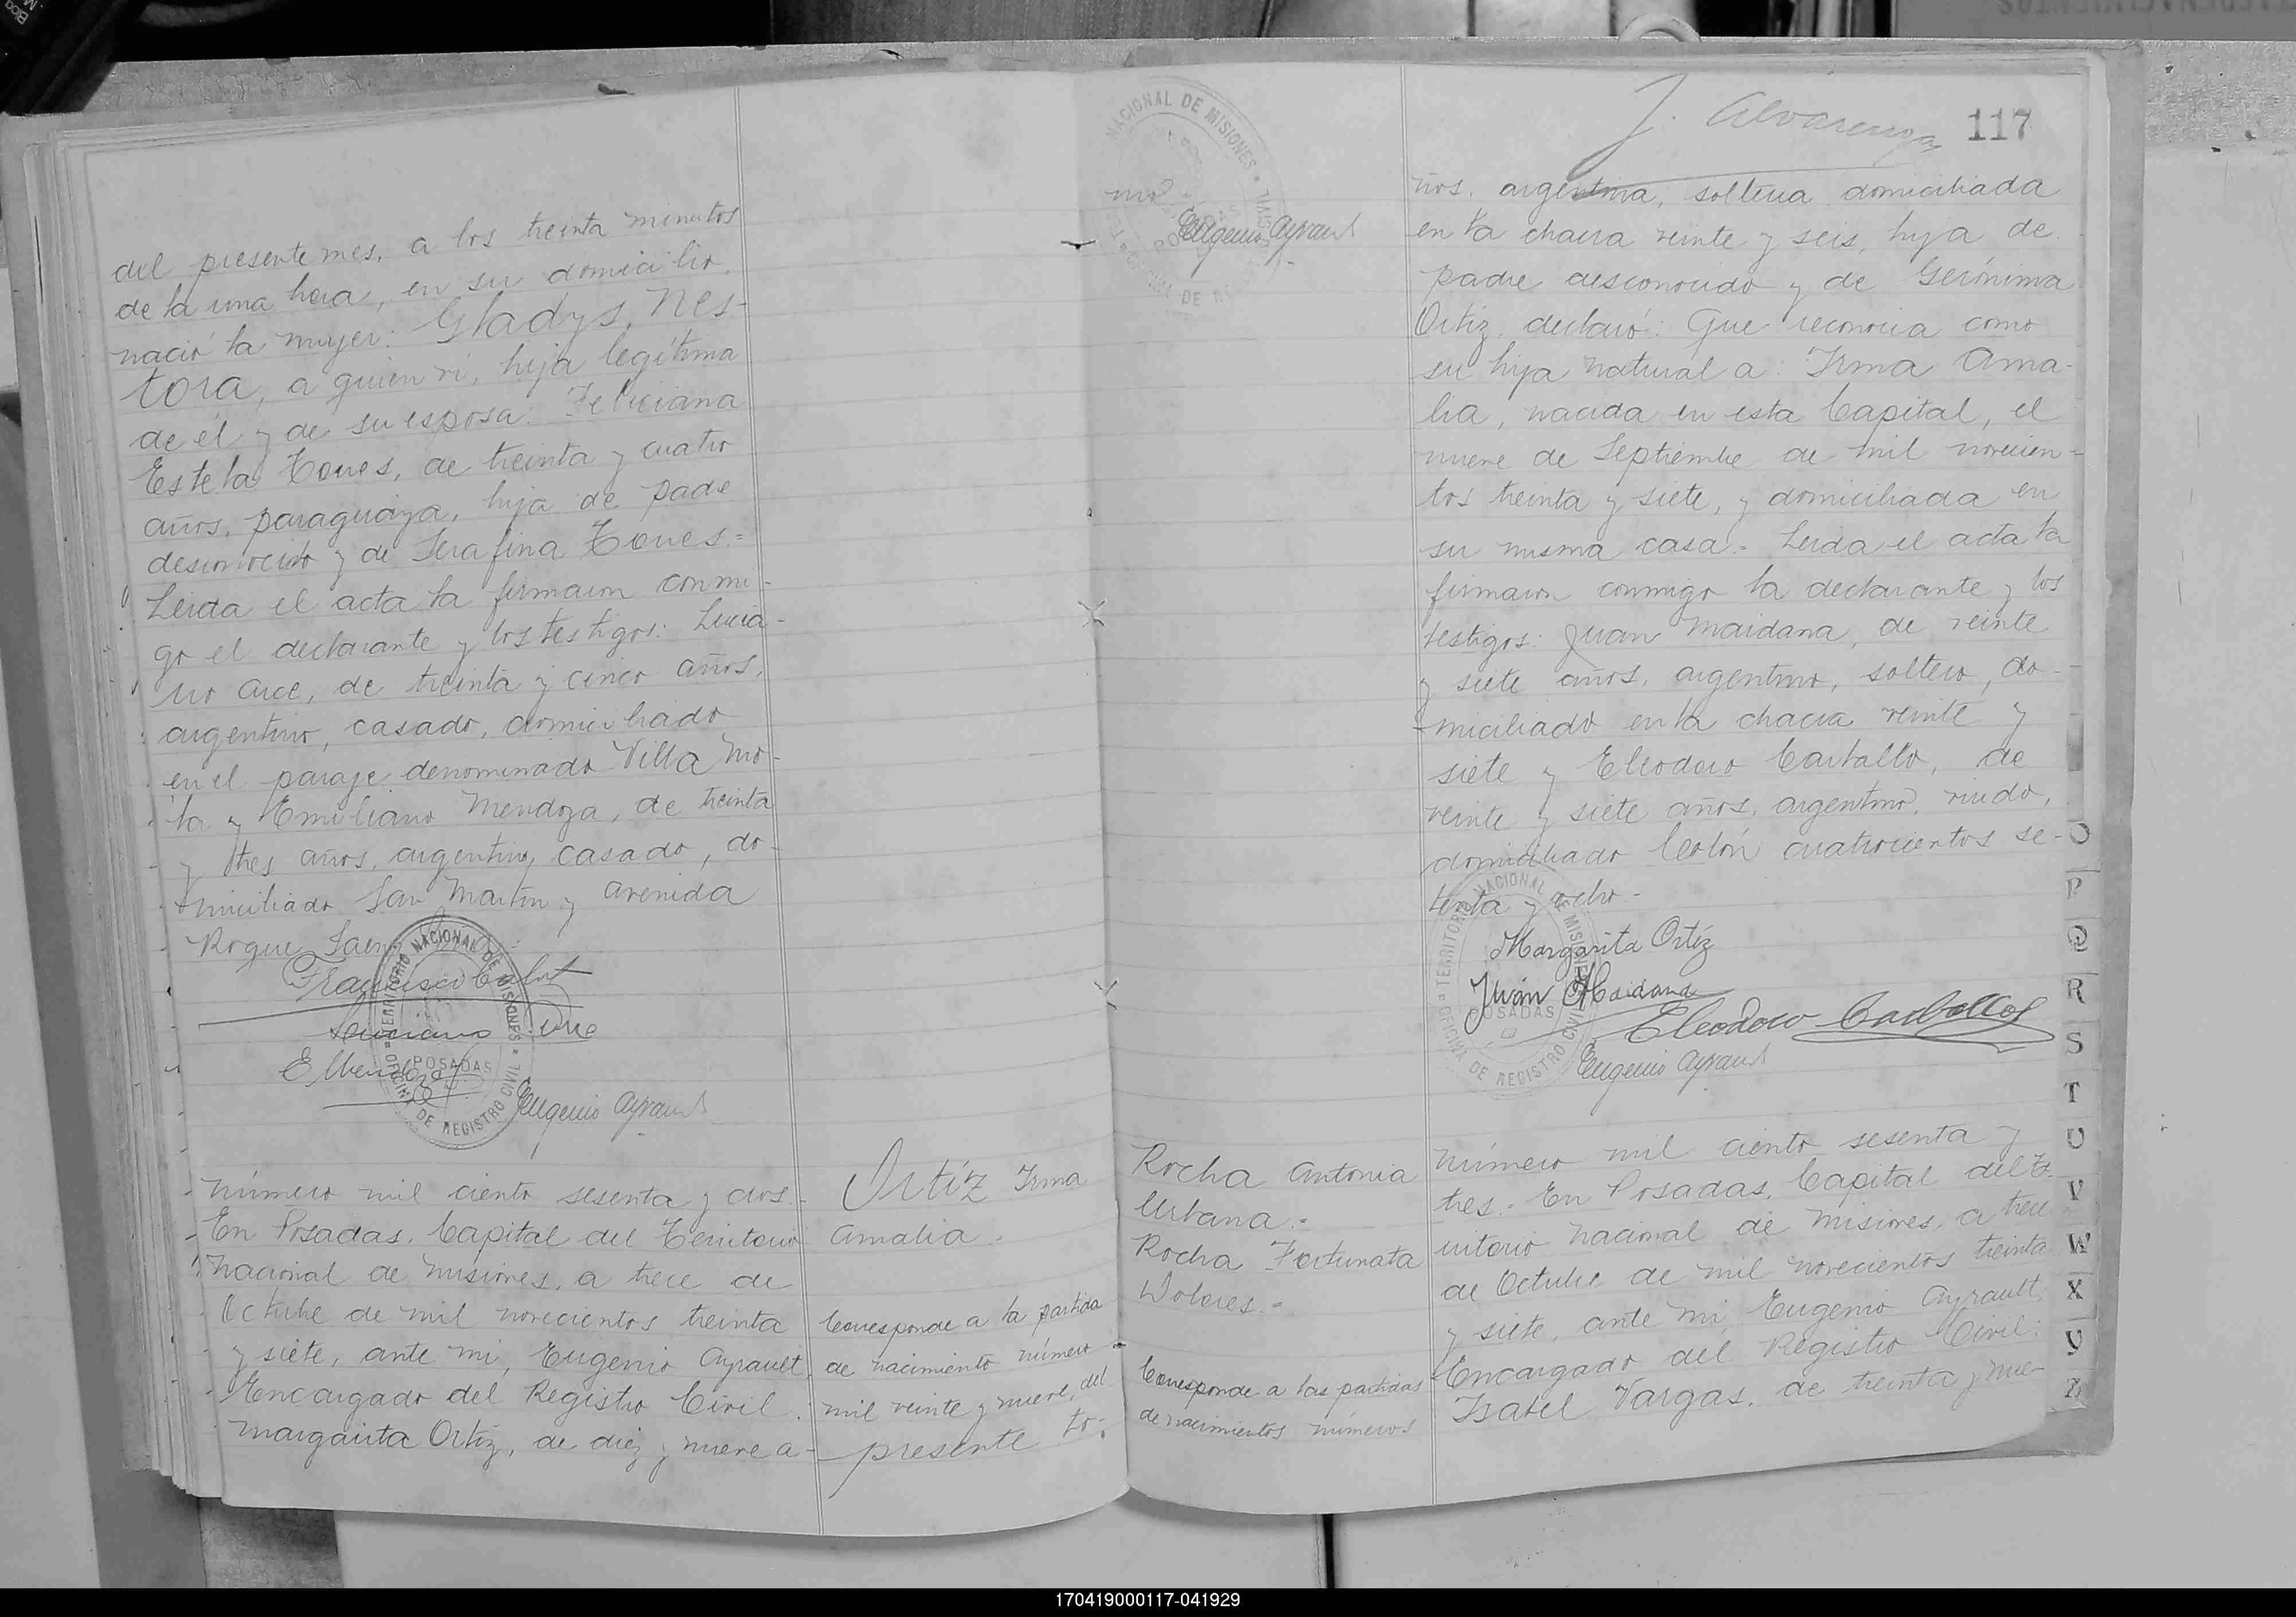 del presente mes, a los treinta minutos
de la una hora, en su domicilio,
nació la mujer: Gladys, Nes-
tora, a quien ví, hija legítima
de él y de su esposa: Feliciana
Estela Torres, de treinta y cuatro
años, paraguaya, hija de padre
desconocido y de Serafina Torres.=
Leída el acta la firmaron conmi-
go el declarante y los testigos: Lucia-
no Arce, de treinta y cinco años,
argentino, casado, domiciliado
en el paraje denominado Villa Mo-
la y Emiliano Mendoza, de treinta
y tres años, argentino, casado, do-
miciliado San Martín y avenida
Roque Saenz
Francisco
Luciano Arce
E Mendoza
Eugenio Ayrault
TERRITORIO NACIONAL DE MISIONES
POSADAS
OFICINA DE REGISTRO CIVIL
Número mil ciento sesenta y dos.
En Posadas, Capital del Territorio
Nacional de Misiones, a trece de
Octubre de mil novecientos treinta
y siete, ante mí, Eugenio Ayrault,
Encargado del Registro Civil:
Margarita Ortíz, de diez y nueve a-
Ortíz Irma
Amalia.
Corresponde a la partida
de nacimiento número
mil veinte y nueve, del
presente to-
J. Alvarenga
117
mo.
Eugenio Ayrault
NACIONAL DE MISIONES
POSADAS
ños, argentina, soltera domiciliada
en la chacra veinte y seis, hija de
padre desconocido y de Gerónima
Ortiz, declaró: Que reconocía como
su hija natural a: Irma Ama-
lia, nacida en esta Capital, el
nueve de Septiembre de mil novecien-
tos treinta y siete, y domiciliada en
su misma casa.- Leída el acta la
firmaron conmigo la declarante y los
testigos: Juan Maidana, de veinte
y siete años, argentino, soltero, do-
miciliado en la chacra veinte y
siete y Eleodoro Carballo, de
veinte y siete años, argentino, viudo,
domiciliado Colón cuatrocientos se-
tenta y ocho.-
Margarita Ortíz
Juán Maidana
Eleodoro Carballo
Eugenio Ayrault
TERRITORIO NACIONAL DE MISIONES
POSADAS
OFICINA DE REGISTRO CIVIL
Rocha Antonia
Urbana.=
Rocha Fortunata
Dolores.=
Corresponde a las partidas
de nacimientos números
Número mil ciento sesenta y
tres.- En Posadas, Capital del Te-
rritorio Nacional de Misiones, a trece
de Octubre de mil novecientos treinta
y siete, ante mí, Eugenio Ayrault,
Encargado del Registro Civil:
Isabel Vargas, de treinta y nue-
O
P
Q
R
S
T
U
V
W
X
Y
Z
170419000117-041929